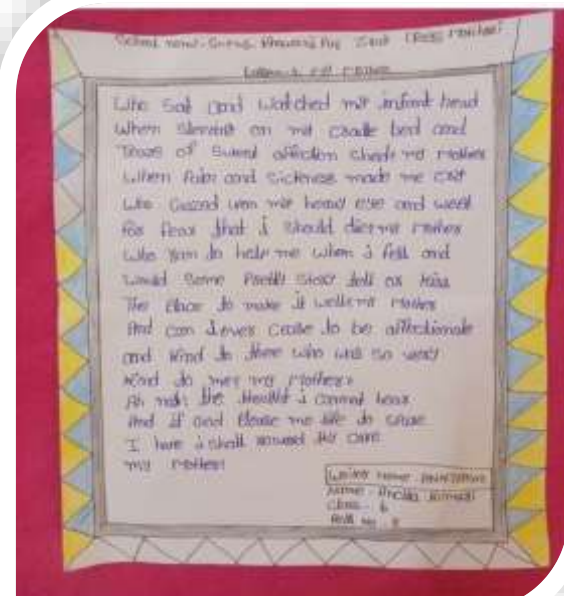 School name
Who sat and watched my infant head
When sleeping on my cradle bed and
Tears of sweet affection shed my Mother
When Pain and Sickness made me cry
Who Gazed upon my heavy eye and weep
for fear that i should die my Mother
Who ran to help me when i fell and
Would Some Pretty Story tell or kiss
The Place to make it well my Mother
And can i ever cease to be affectionate
and kind to thee who was so very
Kind to me my Mother
Ah no the thought i cannot bear
And if God Please my life to spare
I hope i shall reward thy care
my Mother
Writer name
Name
Class - 6
Roll no.